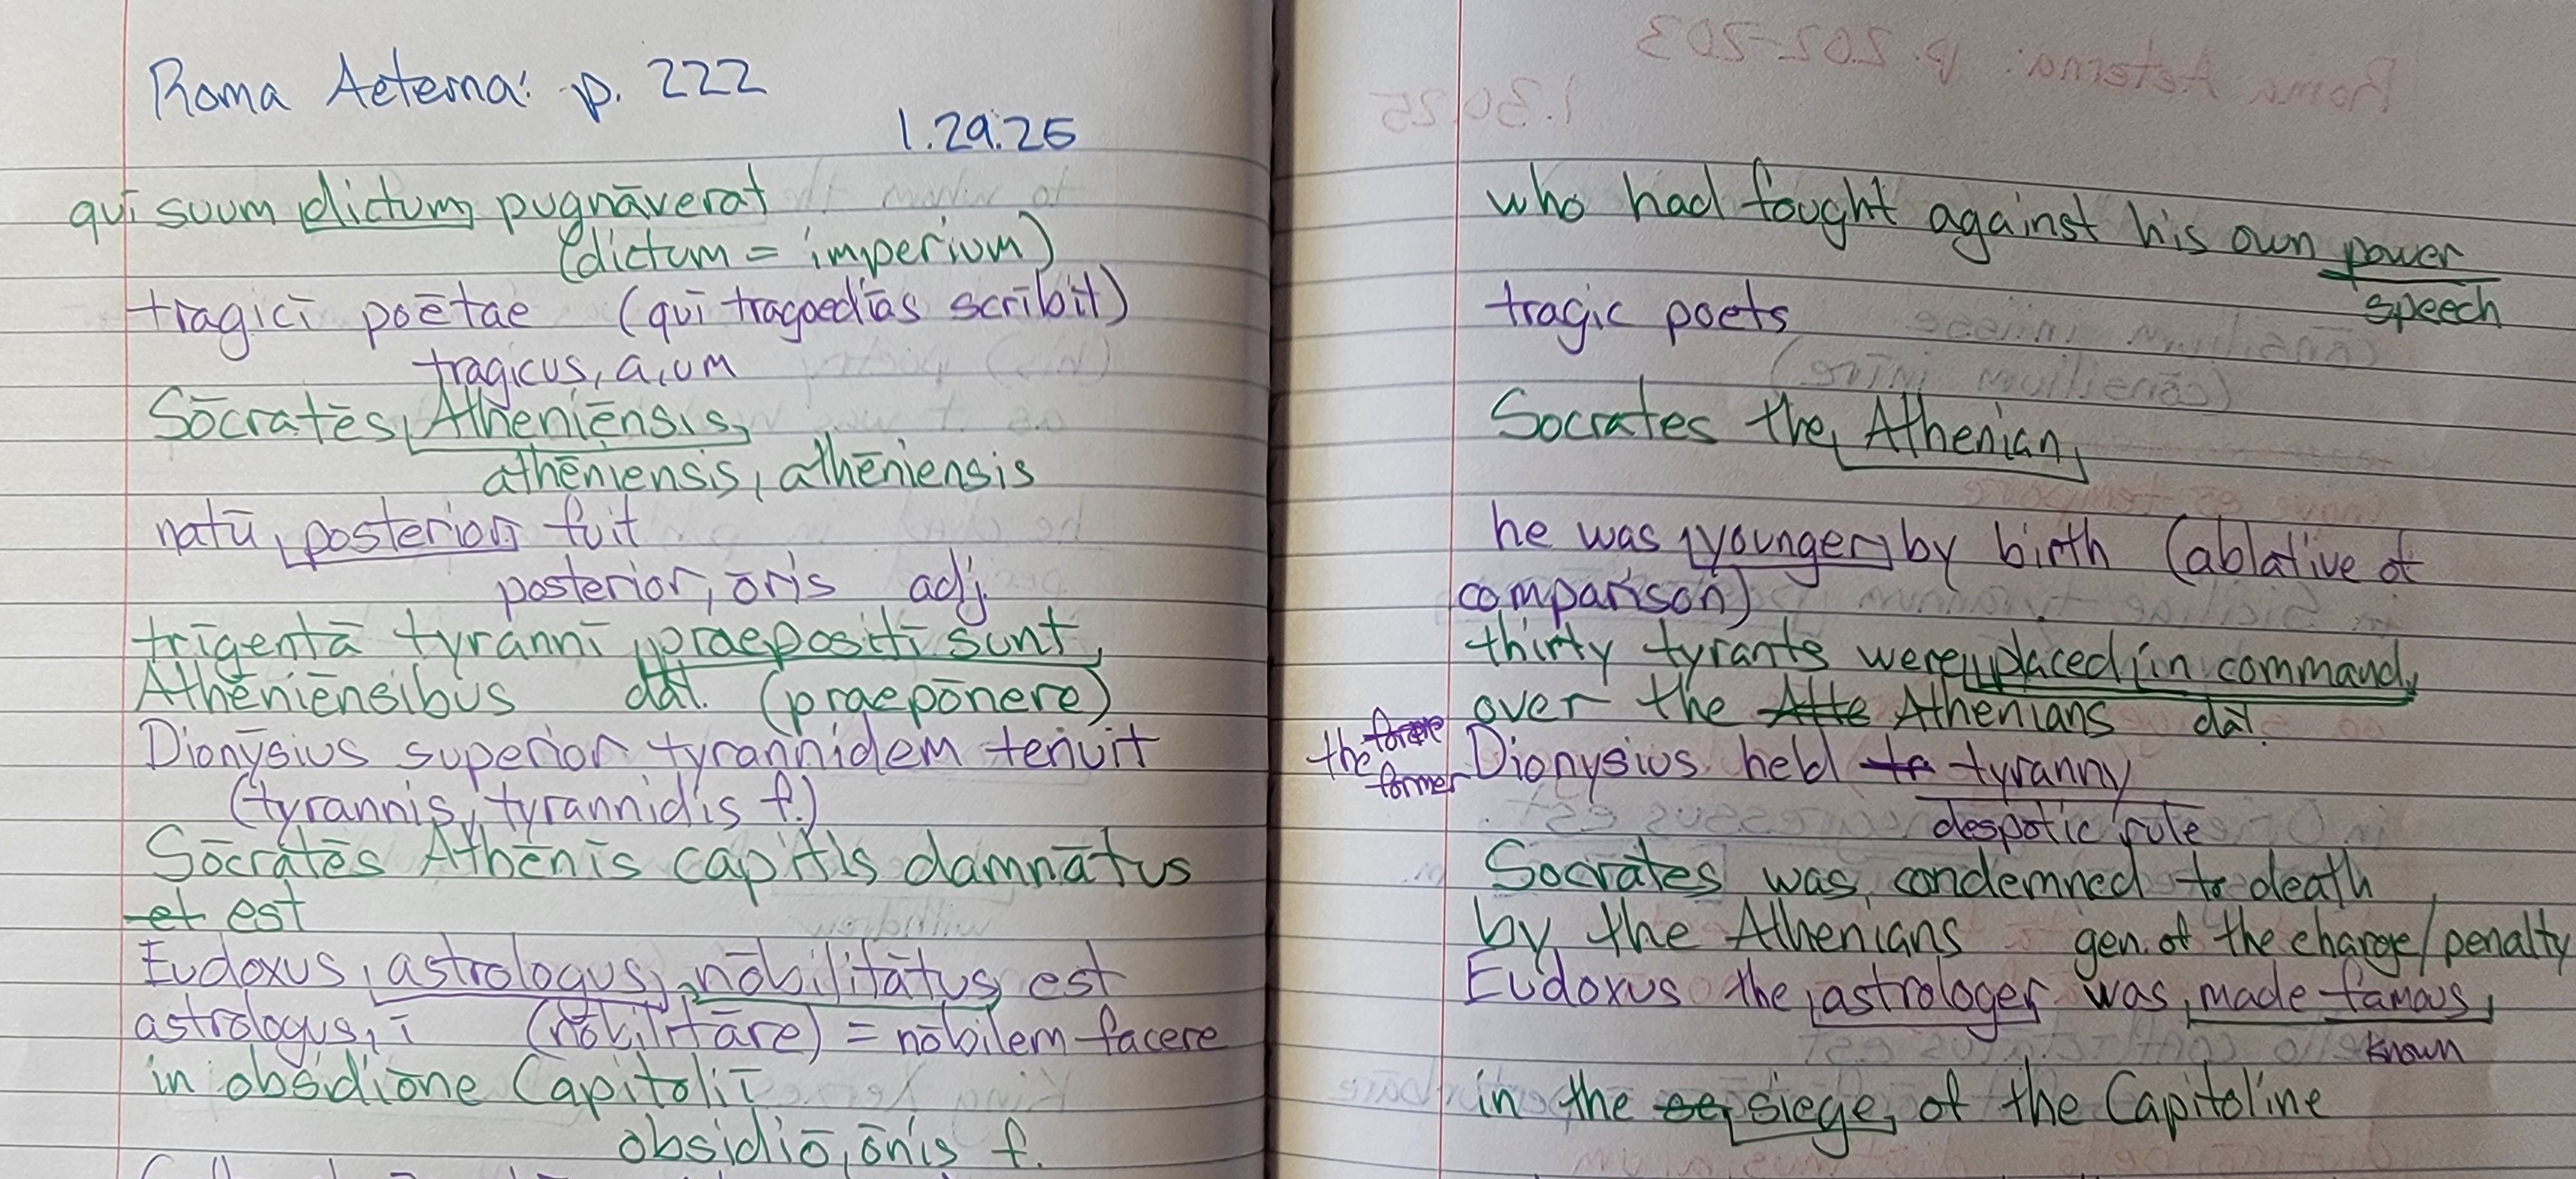 Roma Aeterna: p. 222
1.29.25
qui suum dictum pugnāverat
(dictum = imperium)
tragicī poētae (quī tragoediās scrībit)
tragicus, a, um
Sōcratēs Athēniēnsis
athēniensis, athēniensis
natū posterior fuit
posterior, ōris adj.
trīgentā tyrannī praepositī sunt
Athēniēnsibus dat. (praepōnere)
Dionȳsius superior tyrannidem tenuit
(tyrannis, tyrannidis f.)
Sōcratēs Athēnīs capitis damnātus
et est
Eudoxus astrologus nōbilitātus est
astrologus, ī (nōbilitāre) = nōbilem facere
in obsidiōne Capitoliī
obsidiō, ōnis f.
who had fought against his own power
speech
tragic poets
Socrates the Athenian
he was younger by birth (ablative of
comparison)
thirty tyrants were placed in command
over the Atte Athenians dat.
the former Dionysius held tyranny
despotic rule
Socrates was condemned to death
by the Athenians gen. of the charge/penalty
Eudoxus the astrologer was made famous
known
in the siege of the Capitoline